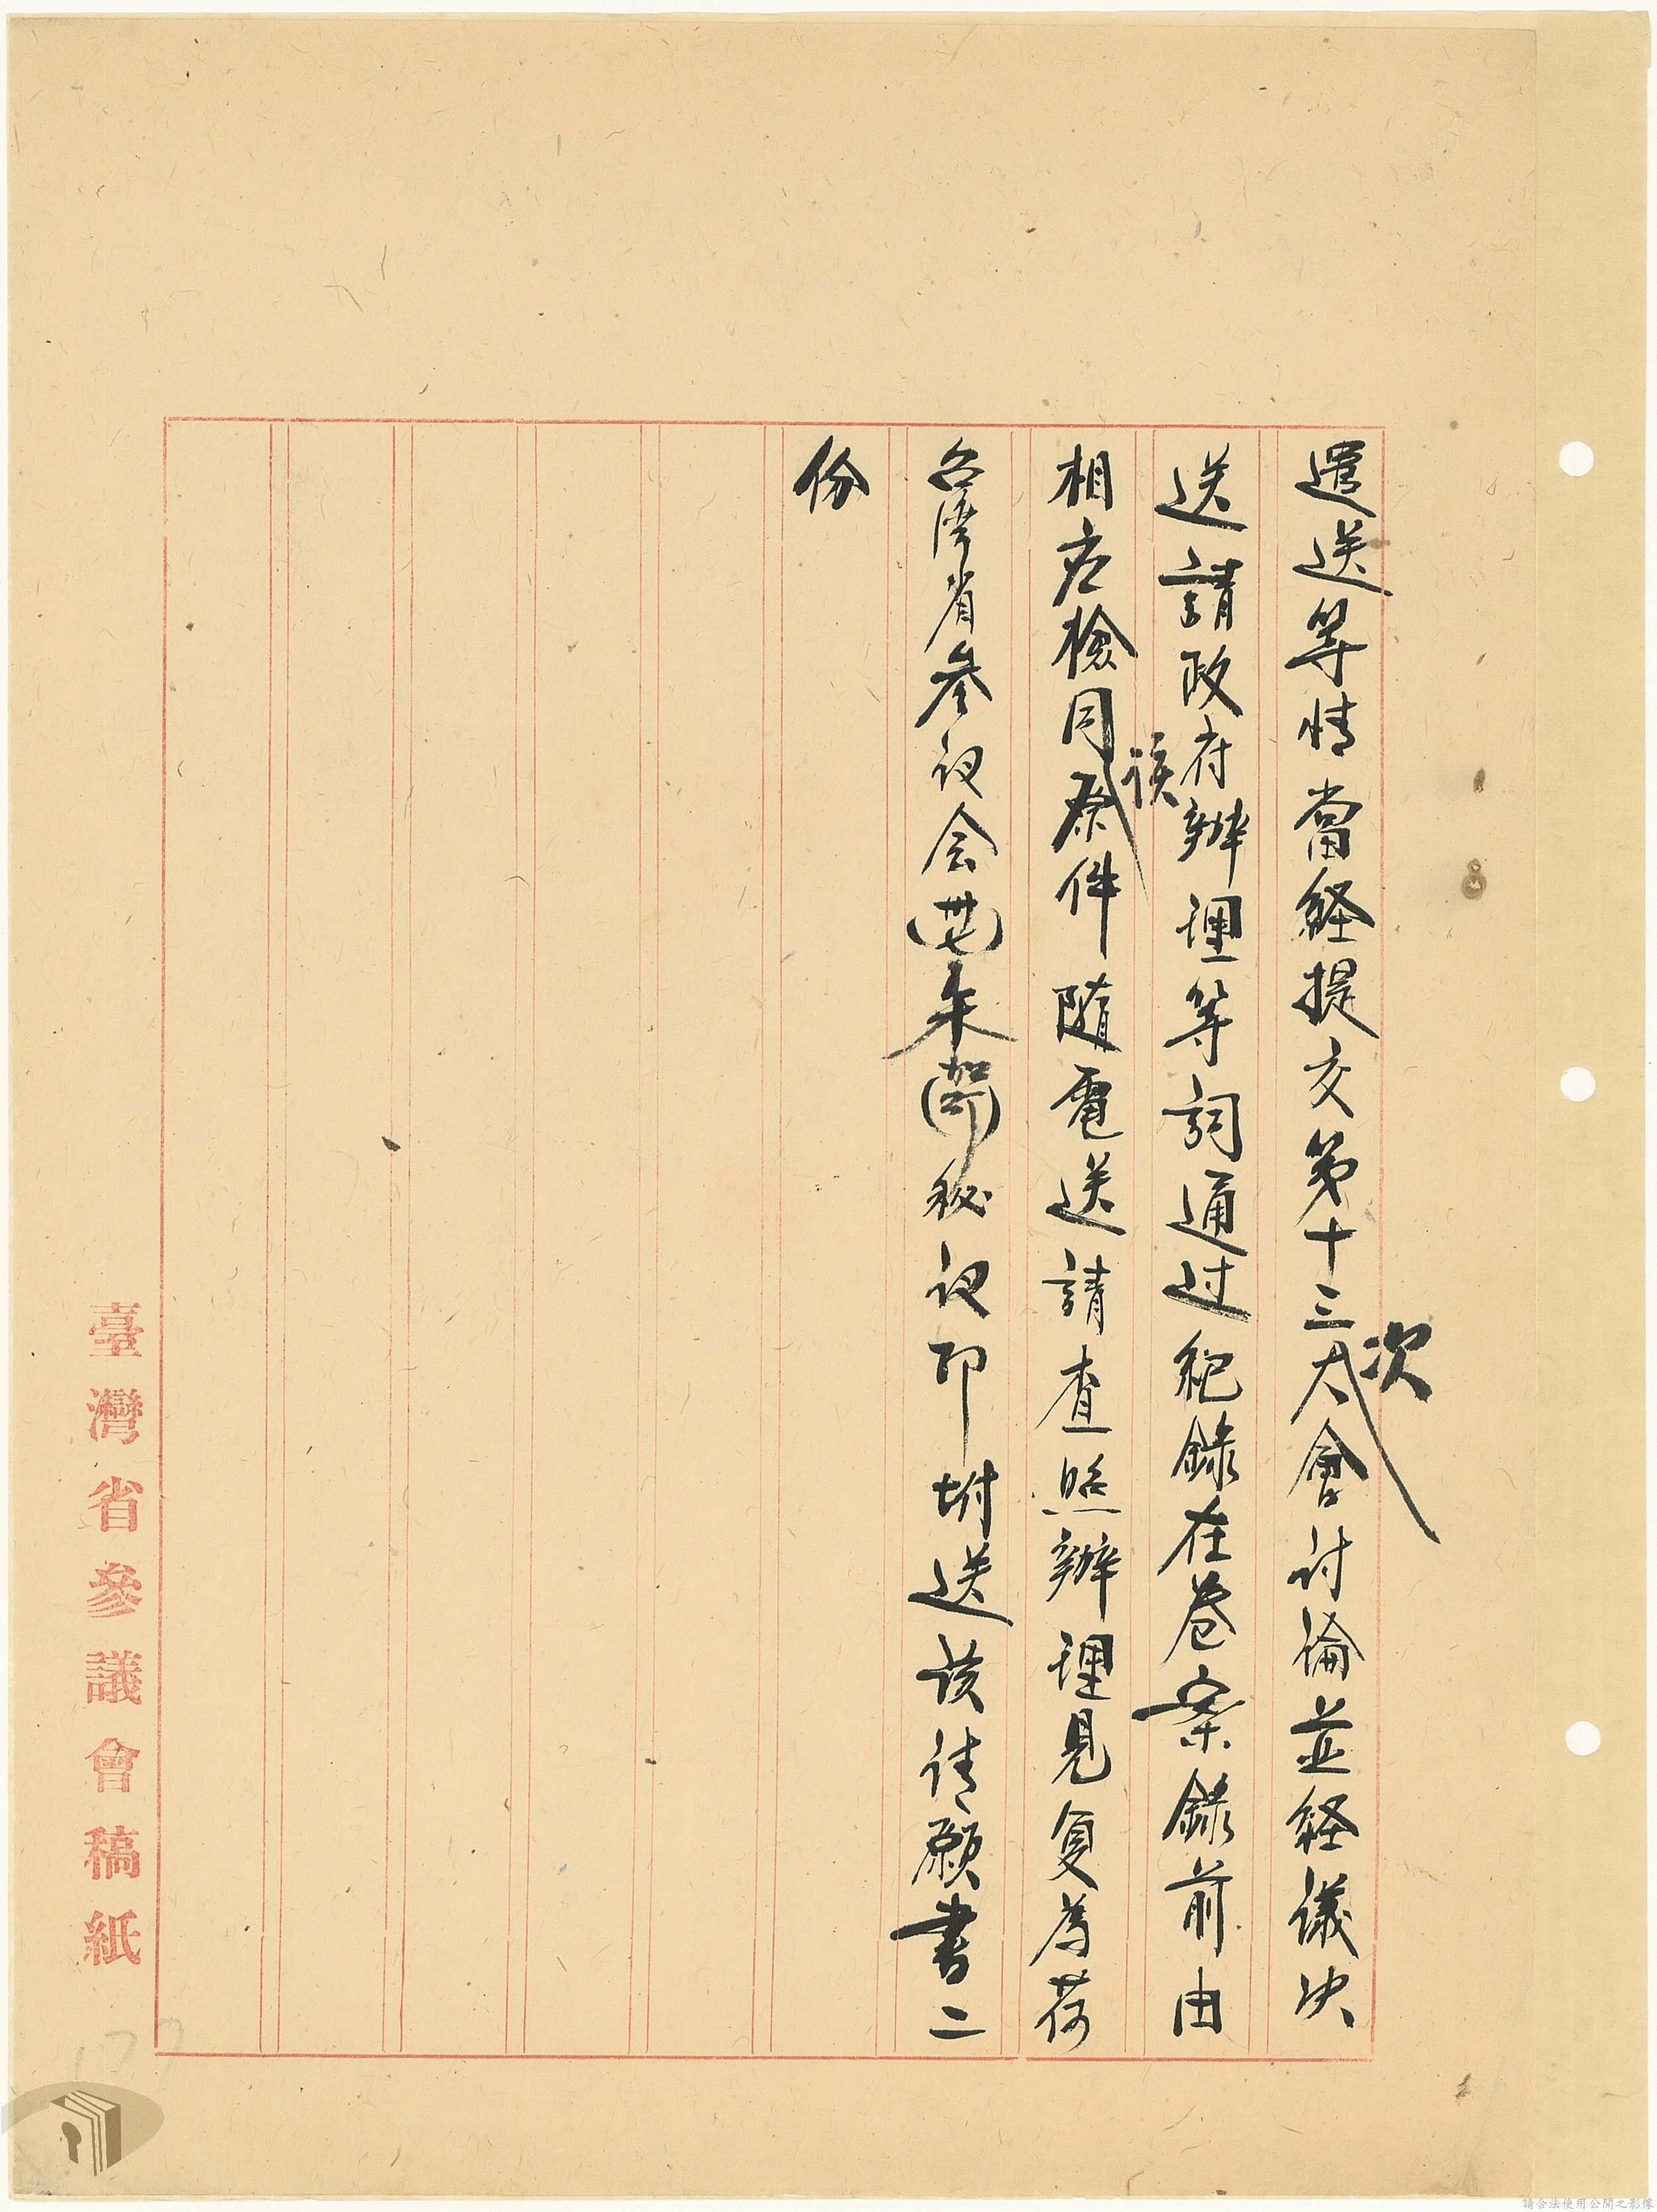 遣送等情當経提交第十三次大會討論並経議決
送請政府辦理等詞通过紀錄在卷案錄前由
相应檢同該原件隨電送請查照辦理見复為荷
台湾省参议会(卅七)未( )秘议印坿送该请愿書二
份
臺灣省參議會稿紙
請合法使用公開之影像